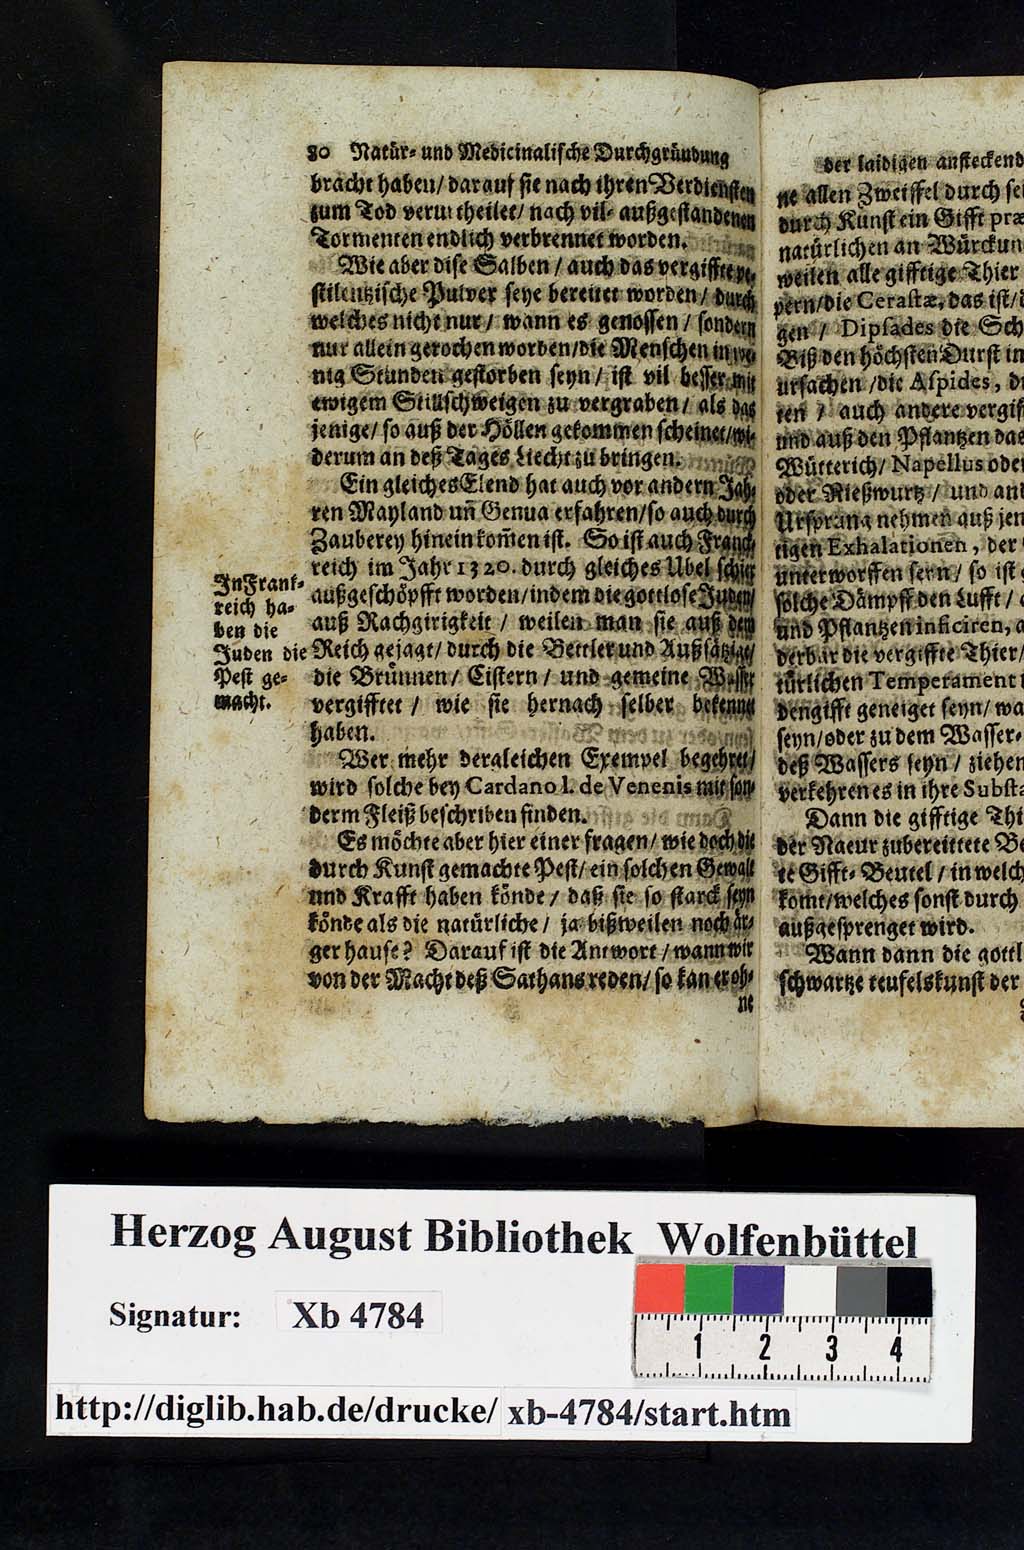 80 Natür- und Medicinalische Durchgründung
bracht haben/ darauf sie nach ihren Verdiensten
zum Tod verurtheilet/ nach vil- außgestandenen
Tormenten endlich verbrennet worden.
Wie aber dise Salben / auch das vergiffte pe-
stilentzische Pulver seye bereitet worden / durch
welches nicht nur / wann es genossen / sondern
nur allein gerochen worden/die Menschen in we-
nig Stunden gestorben seyn / ist vil besser mit
ewigem Stillschweigen zu vergraben / als das
jenige/ so auß der Höllen gekommen scheinet/wi-
derum an deß Tages Liecht zu bringen.
Ein gleiches Elend hat auch vor andern Jah-
ren Mayland uñ Genua erfahren/so auch durch
Zauberey hinein kom̃en ist. So ist auch Franck-
reich im Jahr 1320. durch gleiches Ubel schier
außgeschöpfft worden/indem die gottlose Juden/
auß Rachgirigkeit / weilen man sie auß dem
Reich gejagt/ durch die Bettler und Außsätzige/
die Brünnen/ Cistern / und gemeine Wasser
vergifftet / wie sie hernach selber bekennet
haben.
Wer mehr dergleichen Exempel begehret/
wird solche bey Cardano l. de Venenis mit son-
derm Fleiß beschriben finden.
Es möchte aber hier einer fragen/ wie doch die
durch Kunst gemachte Pest/ ein solchen Gewalt
und Krafft haben könde / daß sie so starck seyn
könde als die natürliche / ja bißweilen noch är-
ger hause? Darauf ist die Antwort / wann wir
von der Macht deß Sathans reden/ so kan er oh-
ne
In Frank-
reich ha-
ben die
Juden die
Pest ge-
macht.
der laidigen ansteckend
ne allen Zweiffel durch se
durch Kunst ein Gifft præ
natürlichen an Würckun
weilen alle gifftige Thier
pern/die Cerastæ, das ist/
gen / Dipsades die Sch
Biß den höchsten Durst in
ursachen /die Aspides, d
ten / auch andere vergif
und auß den Pflantzen das
Wütterich/ Napellus oder
oder Nießwurtz / und and
Ursprung nehmen auß jen
tigen Exhalationen, der
unterworffen seyn / so ist
solche Dämpff den Lufft /
und Pflantzen inficiren, a
derbar die vergiffte Thier/
türlichen Temperament
dengifft geneiget seyn/ wa
seyn/oder zu dem Wasser-
deß Wassers seyn / ziehen
verkehren es in ihre Substa
Dann die gifftige Thi
der Naeur zubereittete Be
te Gifft- Beutel / in welch
komt/welches sonst durch
außgesprenget wird.
Wann dann die gottl
schwartze teufelskunst der
Herzog August Bibliothek Wolfenbüttel
Signatur: Xb 4784
1 2 3 4
http://diglib.hab.de/drucke/ xb-4784/start.htm